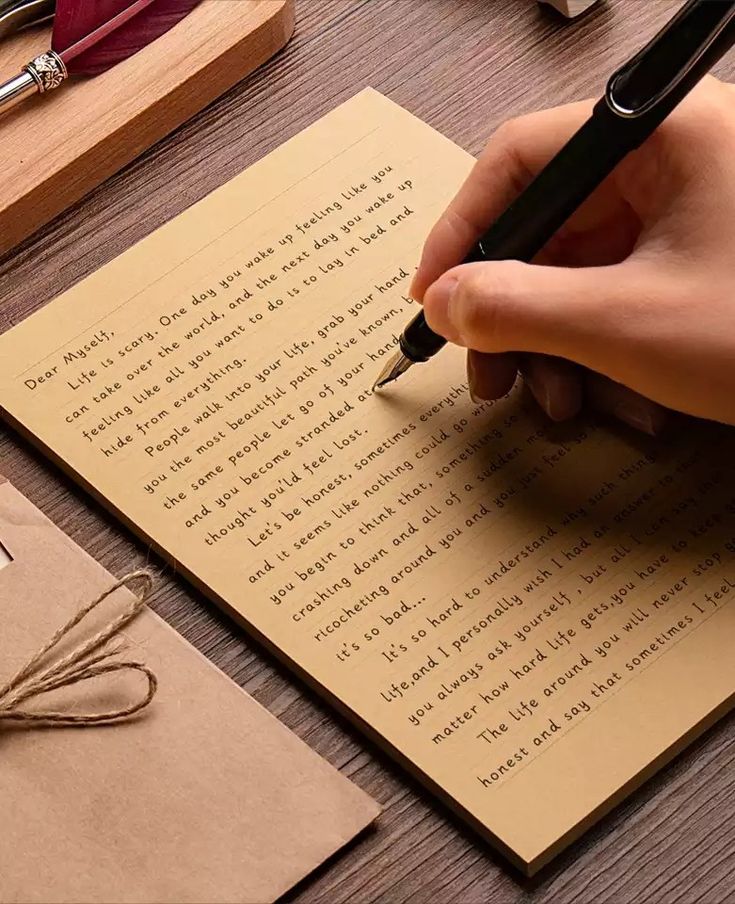 Dear Myself,
Life is scary. One day you wake up feeling like you
can take over the world, and the next day you wake up
feeling like all you want to do is to lay in bed and
hide from everything.
People walk into your life, grab your hand
you the most beautiful path you've known, b
the same people let go of your hand
and you become stranded at
thought you'ld feel lost.
Let's be honest, sometimes everythi
and it seems like nothing could go wro
you begin to think that, something s
crashing down and all of a sudden
ricocheting around you and you just feel
it's so bad...
It's so hard to understand why such thing
life,and I personally wish I had an answer to
you always ask yourself , but all I can say
matter how hard life gets,you have to keep
The life around you will never stop
honest and say that sometimes I feel